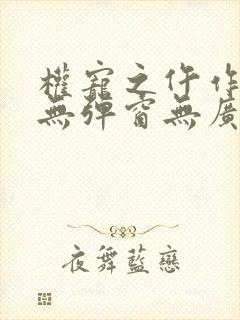 權寵之仵作
無彈窗無廣
夜舞藍戀